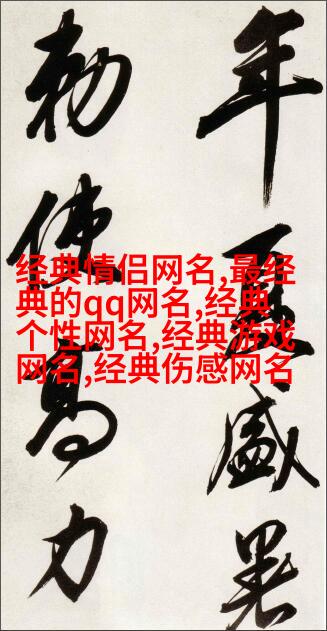 年夏盛暑
勅使高力
经典情侣网名,最经
典的qq网名,经典
个性网名,经典游戏
网名,经典伤感网名